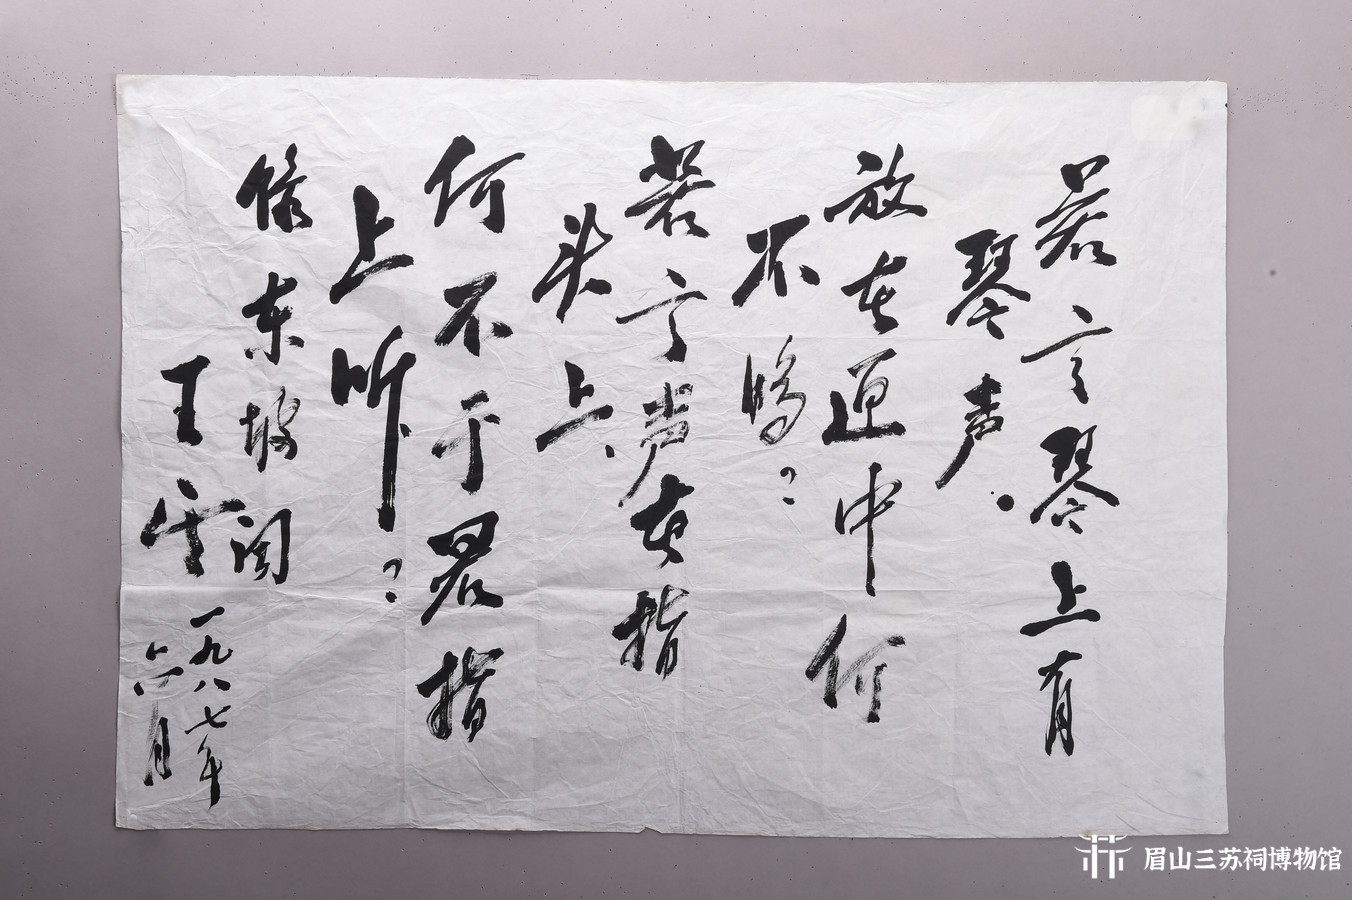 若言琴上有
琴声，
放在匣中何
不鸣？
若言声在指
头上、
何不于君指
上听？
东坡
王
一九八七年
六月
眉山三苏祠博物馆